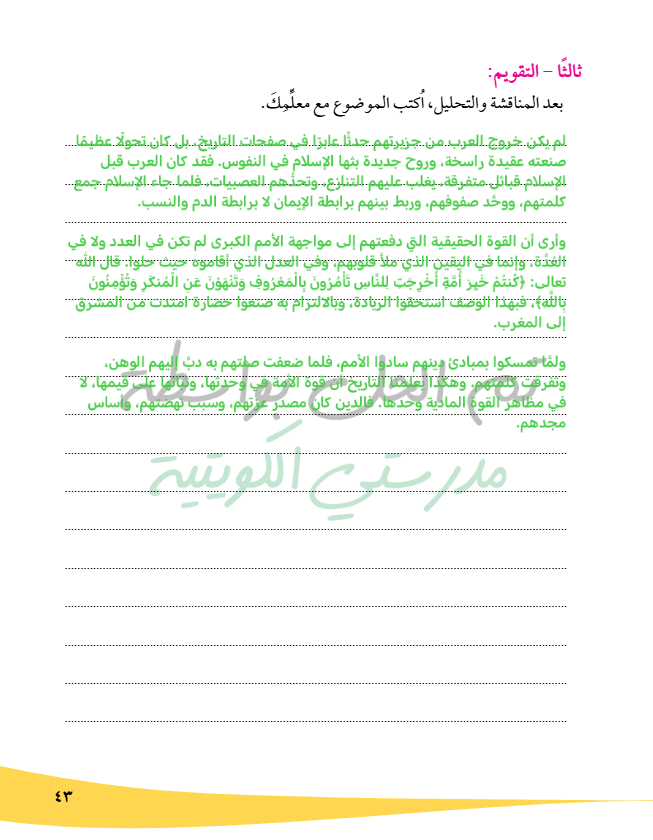 ثالثًا – التقويم:
بعد المناقشة والتحليل، اُكتب الموضوع مع معلِّمِكَ.
لم يكن خروج العرب من جزيرتهم حدثًا عابرًا في صفحات التاريخ، بل كان تحولًا عظيمًا
صنعته عقيدة راسخة، وروح جديدة بثها الإسلام في النفوس. فقد كان العرب قبل
الإسلام قبائل متفرقة، يغلب عليهم التنازع، وتحدّهم العصبيات، فلما جاء الإسلام جمع
كلمتهم، ووحّد صفوفهم، وربط بينهم برابطة الإيمان لا برابطة الدم والنسب.
وأرى أن القوة الحقيقية التي دفعتهم إلى مواجهة الأمم الكبرى لم تكن في العدد ولا في
العُدّة، وإنما في اليقين الذي ملأ قلوبهم، وفي العدل الذي أقاموه حيث حلوا. قال الله
تعالى: ﴿كُنتُمْ خَيْرَ أُمَّةٍ أُخْرِجَتْ لِلنَّاسِ تَأْمُرُونَ بِالْمَعْرُوفِ وَتَنْهَوْنَ عَنِ الْمُنكَرِ وَتُؤْمِنُونَ
بِاللَّهِ﴾، فبهذا الوصف استحقوا الريادة، وبالالتزام به صنعوا حضارة امتدت من المشرق
إلى المغرب.
ولمّا تمسكوا بمبادئ دينهم سادوا الأمم، فلما ضعفت صلتهم به دبّ إليهم الوهن،
وتفرقت كلمتهم. وهكذا يعلمنا التاريخ أن قوة الأمة في وحدتها، وثباتها على قيمها، لا
في مظاهر القوة المادية وحدها. فالدين كان مصدر عزتهم، وسبب نهضتهم، وأساس
مجدهم.
تم الحل بواسطة
مدرستي الكويتية
٤٣